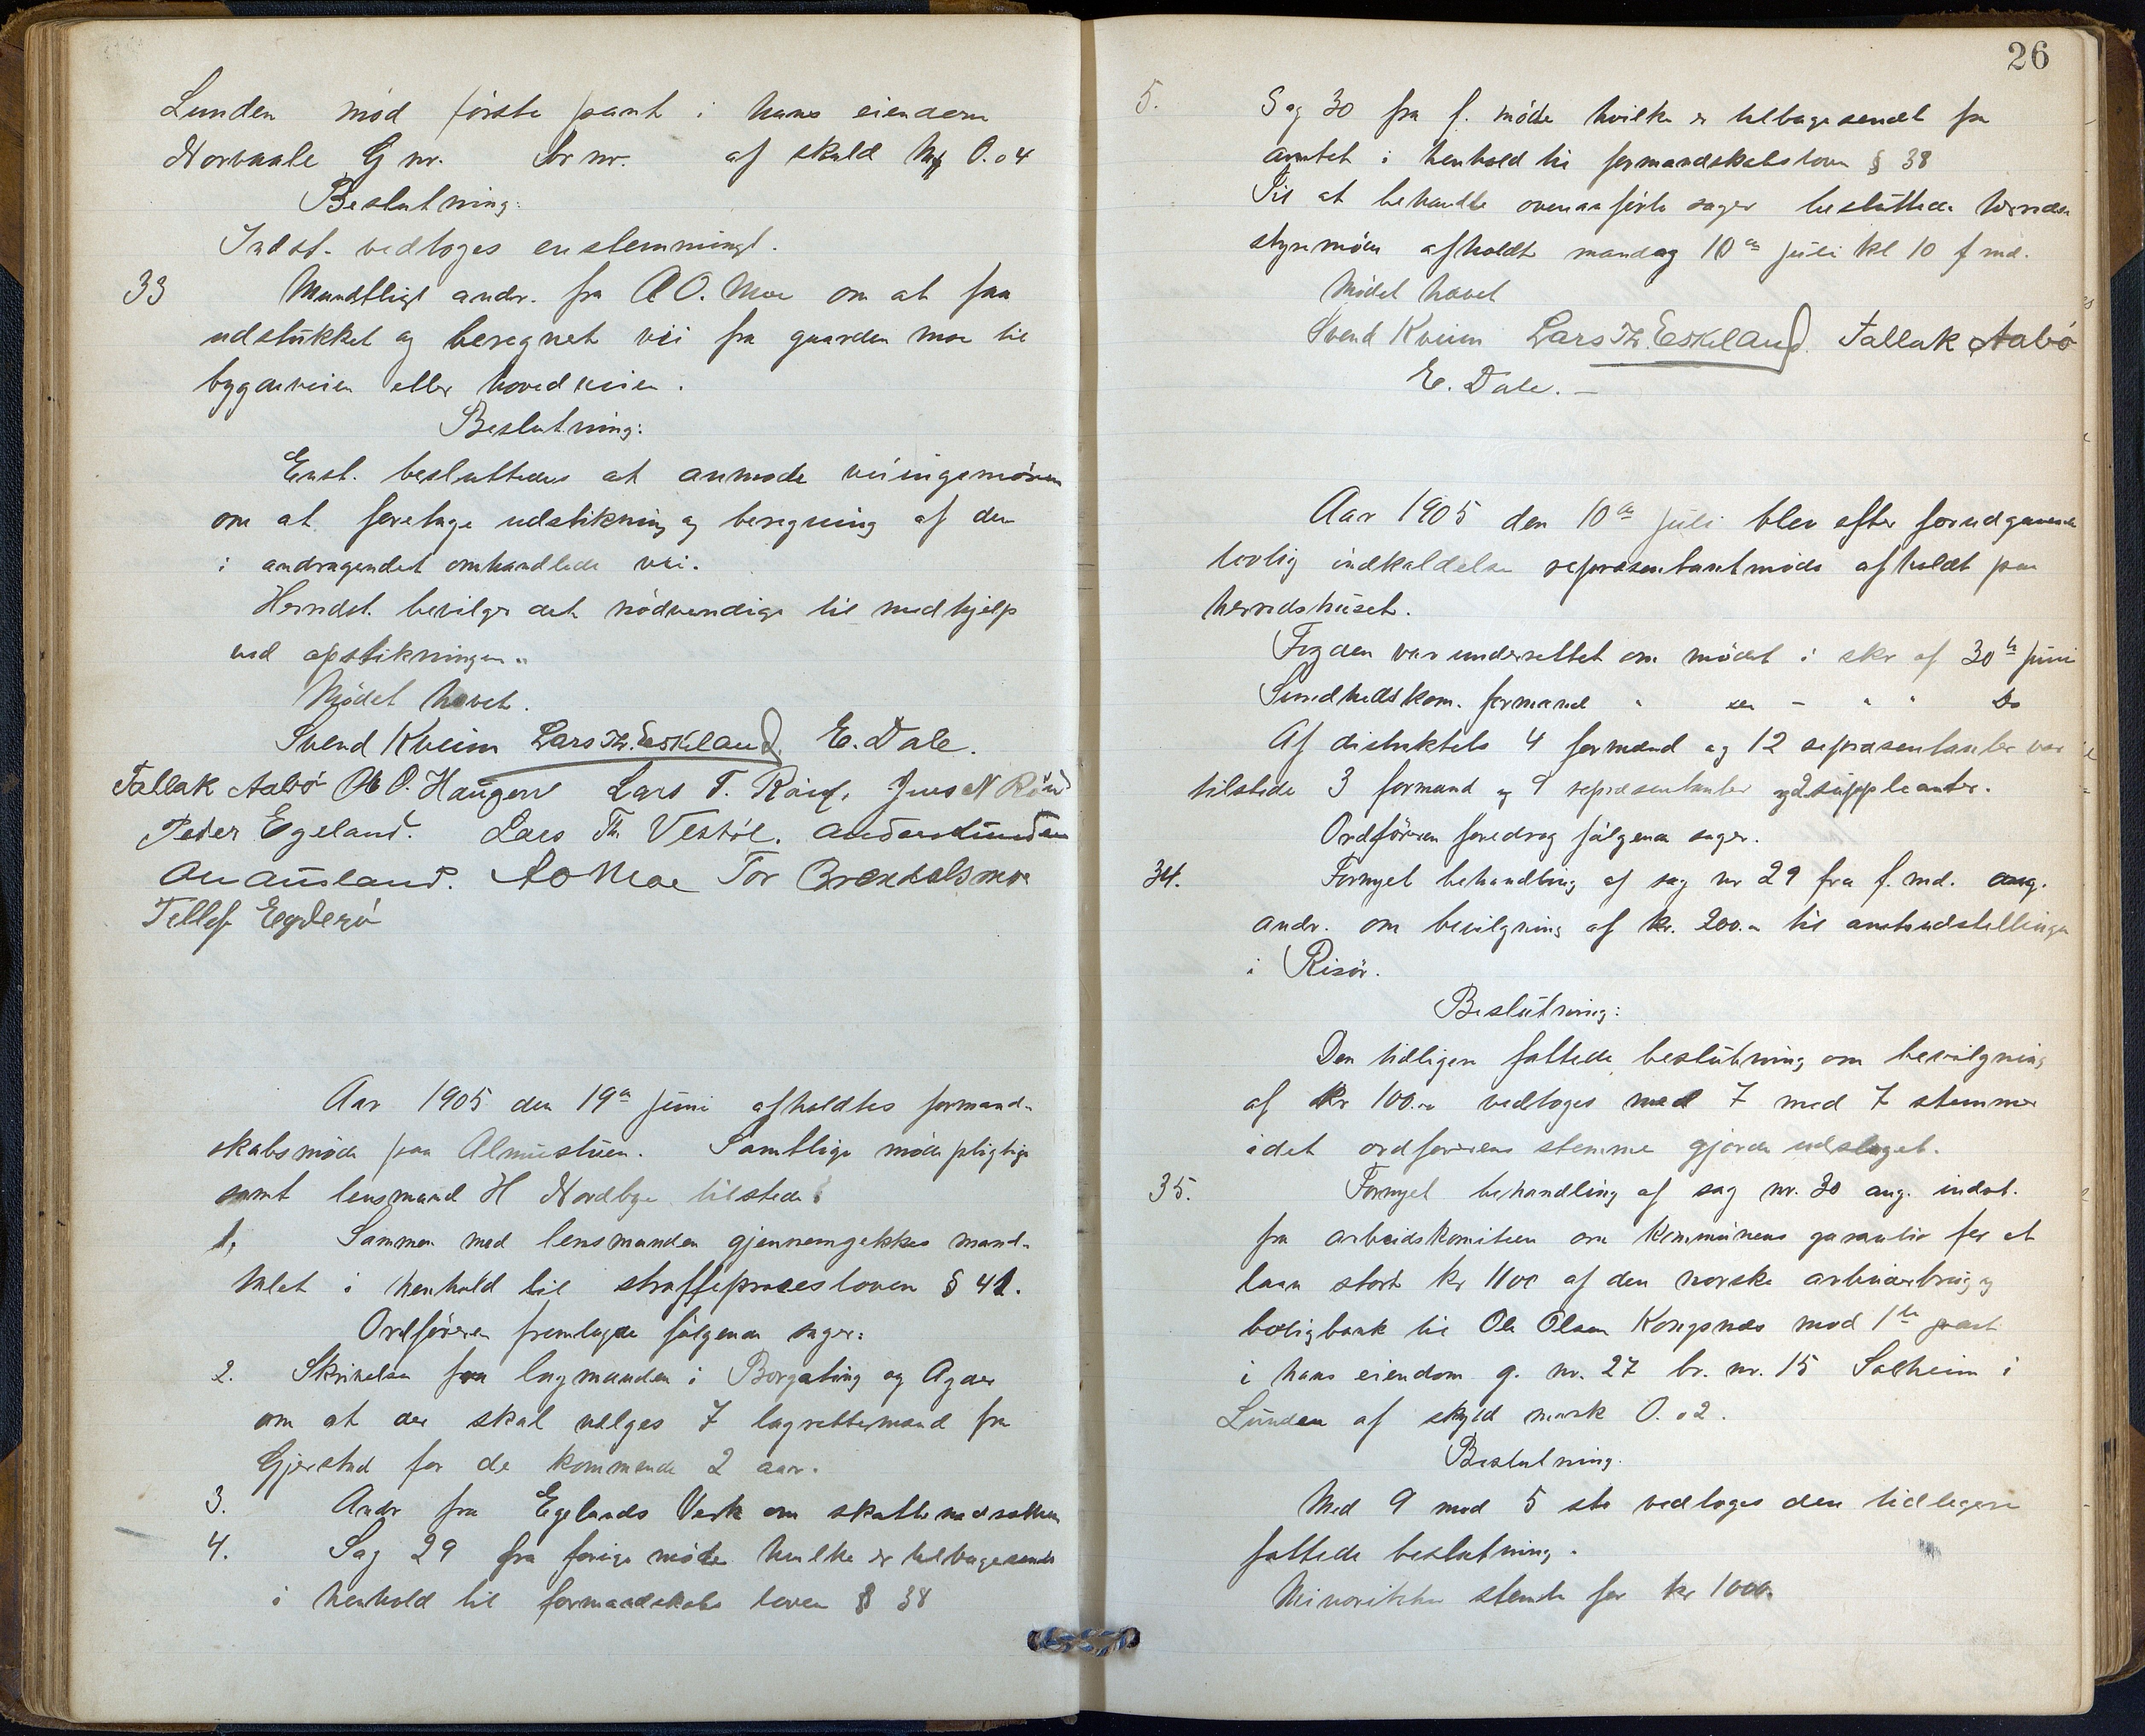 Lunden mod første pant i hans eiendom
Norvaale G nr. br nr. af skyld Mk 0.04
Beslutning:
Indst. vedtoges enstemmingt.
33 Mundtligt andr. fra A O. Moe om at faa
udstukket og beregnet vei fra gaarden moe til
bygdeveien eller hovedveien.
Beslutning:
Enst. besluttedes at anmode veiingeniøren
om at foretage udstikning og beregning af den
i andragendet omhandlede vei.
Herredst. bevilger det nødvendige til medhjelp
ved opstikningen.
Mødet hævet.
Svend Kveim Lars Th. Eskeland. E. Dale.
Tallak Aabø O. Haugen Lars T. Jens N
Peder Egeland. Lars Th Vestøl. Anders Lunden
Ausland. A O Moe Tor Brændalsmo
Tellef
Aar 1905 den 19de juni afholdtes formand-
skabsmøde paa Almustuen. Samtlige mødepligtige
samt lensmand H Nordbye tilstede
1. Sammen med lensmanden gjennemgikkes mand-
tallet i henhold til straffeprocesloven § 41.
Ordføreren fremlagde følgende sager:
2. Skrivelse fra lagmanden i Borgating og Agder
om at der skal velges 7 lagrettemænd fra
Gjerstad for de kommende 2 aar.
3. Andr fra Egelands Verk om skattenedsættelse
4. Sag 29 fra forige møde hvilke er tilbagesendt
i henhold til formandskabs loven § 38
26
5. Sag 30 fra f. møde hvilke er tilbagesendt fra
amtet i henhold til formandskabsloven § 38
Til at behandle ovenanførte sager besluttedes herreds
styremøde afholdt mandag 10de juli kl 10 f md.
Mødet hævet
Svend Kveim Lars Th. Eskeland. Tallak Aabø
E. Dale. –
Aar 1905 den 10de juli blev efter forudgaaende
lovlig indkaldelse repræsentantmøde afholdt paa
herredshuset.
Fogden var underrettet om møded i skr af 30te juni
Sundhedskom. formand " den - " " Do
Af distriktets 4 formænd og 12 repræsentanter var
tilstede 3 formænd og 9 repræsentanter og 2 suppleanter.
Ordføreren foredrog følgende sager.
34. Fornyet behandling af sag nr 29 fra f. md. ang.
andr. om bevilgning af kr. 200.- til amtsudstillingen
i Risør.
Beslutning:
Den tidligere fattede beslutning om bevilgning
af kr 100.00 vedtoges med 7 mod 7 stemmer
idet ordførerens stemme gjorde udslaget.
35. Fornyet behandling af sag nr. 30 ang. indst.
fra arbeidskomiteen om kommunens garanti for et
laan stort kr 1100 af den norske arbeiderbrug og
boligbank til Ole Olsen Kongsnæs mod 1ste pant
i hans eiendom g. nr. 27 br. nr. 15 Solheim i
Lunden af skyld mark 0.02.
Beslutning.
Med 9 mod 5 st. vedtoges den tidligere
fattede beslutning.
Minoriteten stemte for kr 1000.